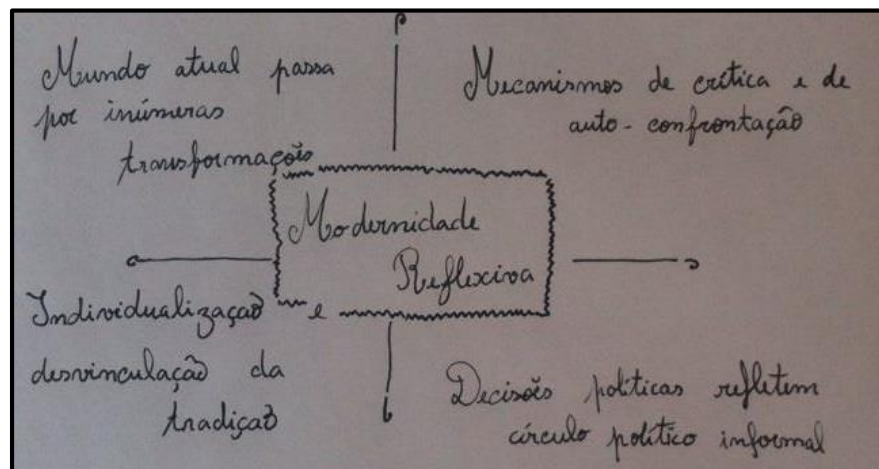 Mundo atual passa
por inúmeras
transformações
Mecanismos de crítica e de
auto-confrontação
Modernidade
Reflexiva
Individualização e
desvinculação da
tradição
Decisões políticas refletem
círculo político informal